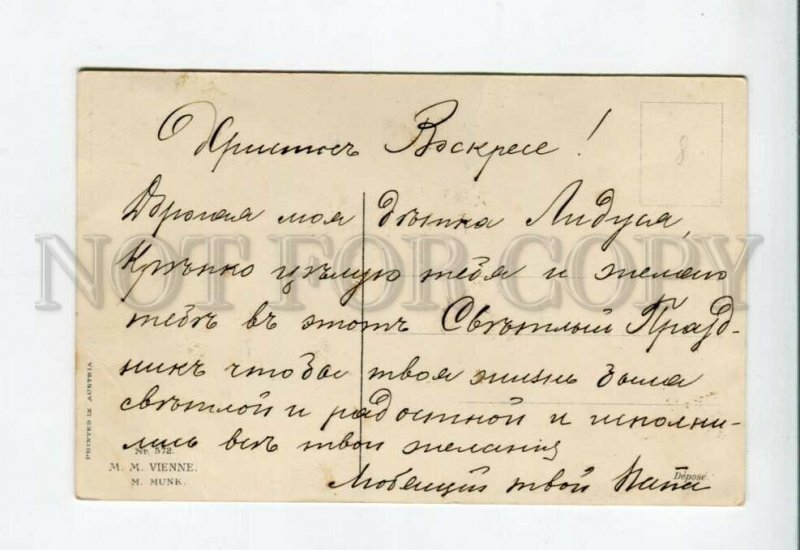 Христосъ Воскресе!
8
Дорогая моя дѣтка Лидуся,
Крѣпко цѣлую тебя и желаю
NOT FOR COPY
тебѣ въ этотъ Свѣтлый Празд-
никъ чтобы твоя жизнь была
свѣтлой и радостной и исполни-
лись всѣ твои желания
Любящий твой Папа
PRINTED IN AUSTRIA
Nr. 572.
M. M. VIENNE.
M. MUNK.
Déposé